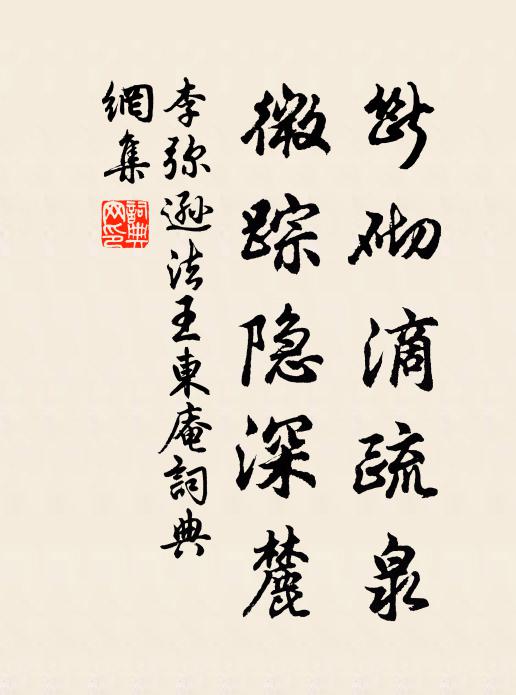 断砌滴疏泉
微踪隐深麓
李弥遜法王東庵詞典
網集
詞典
网印